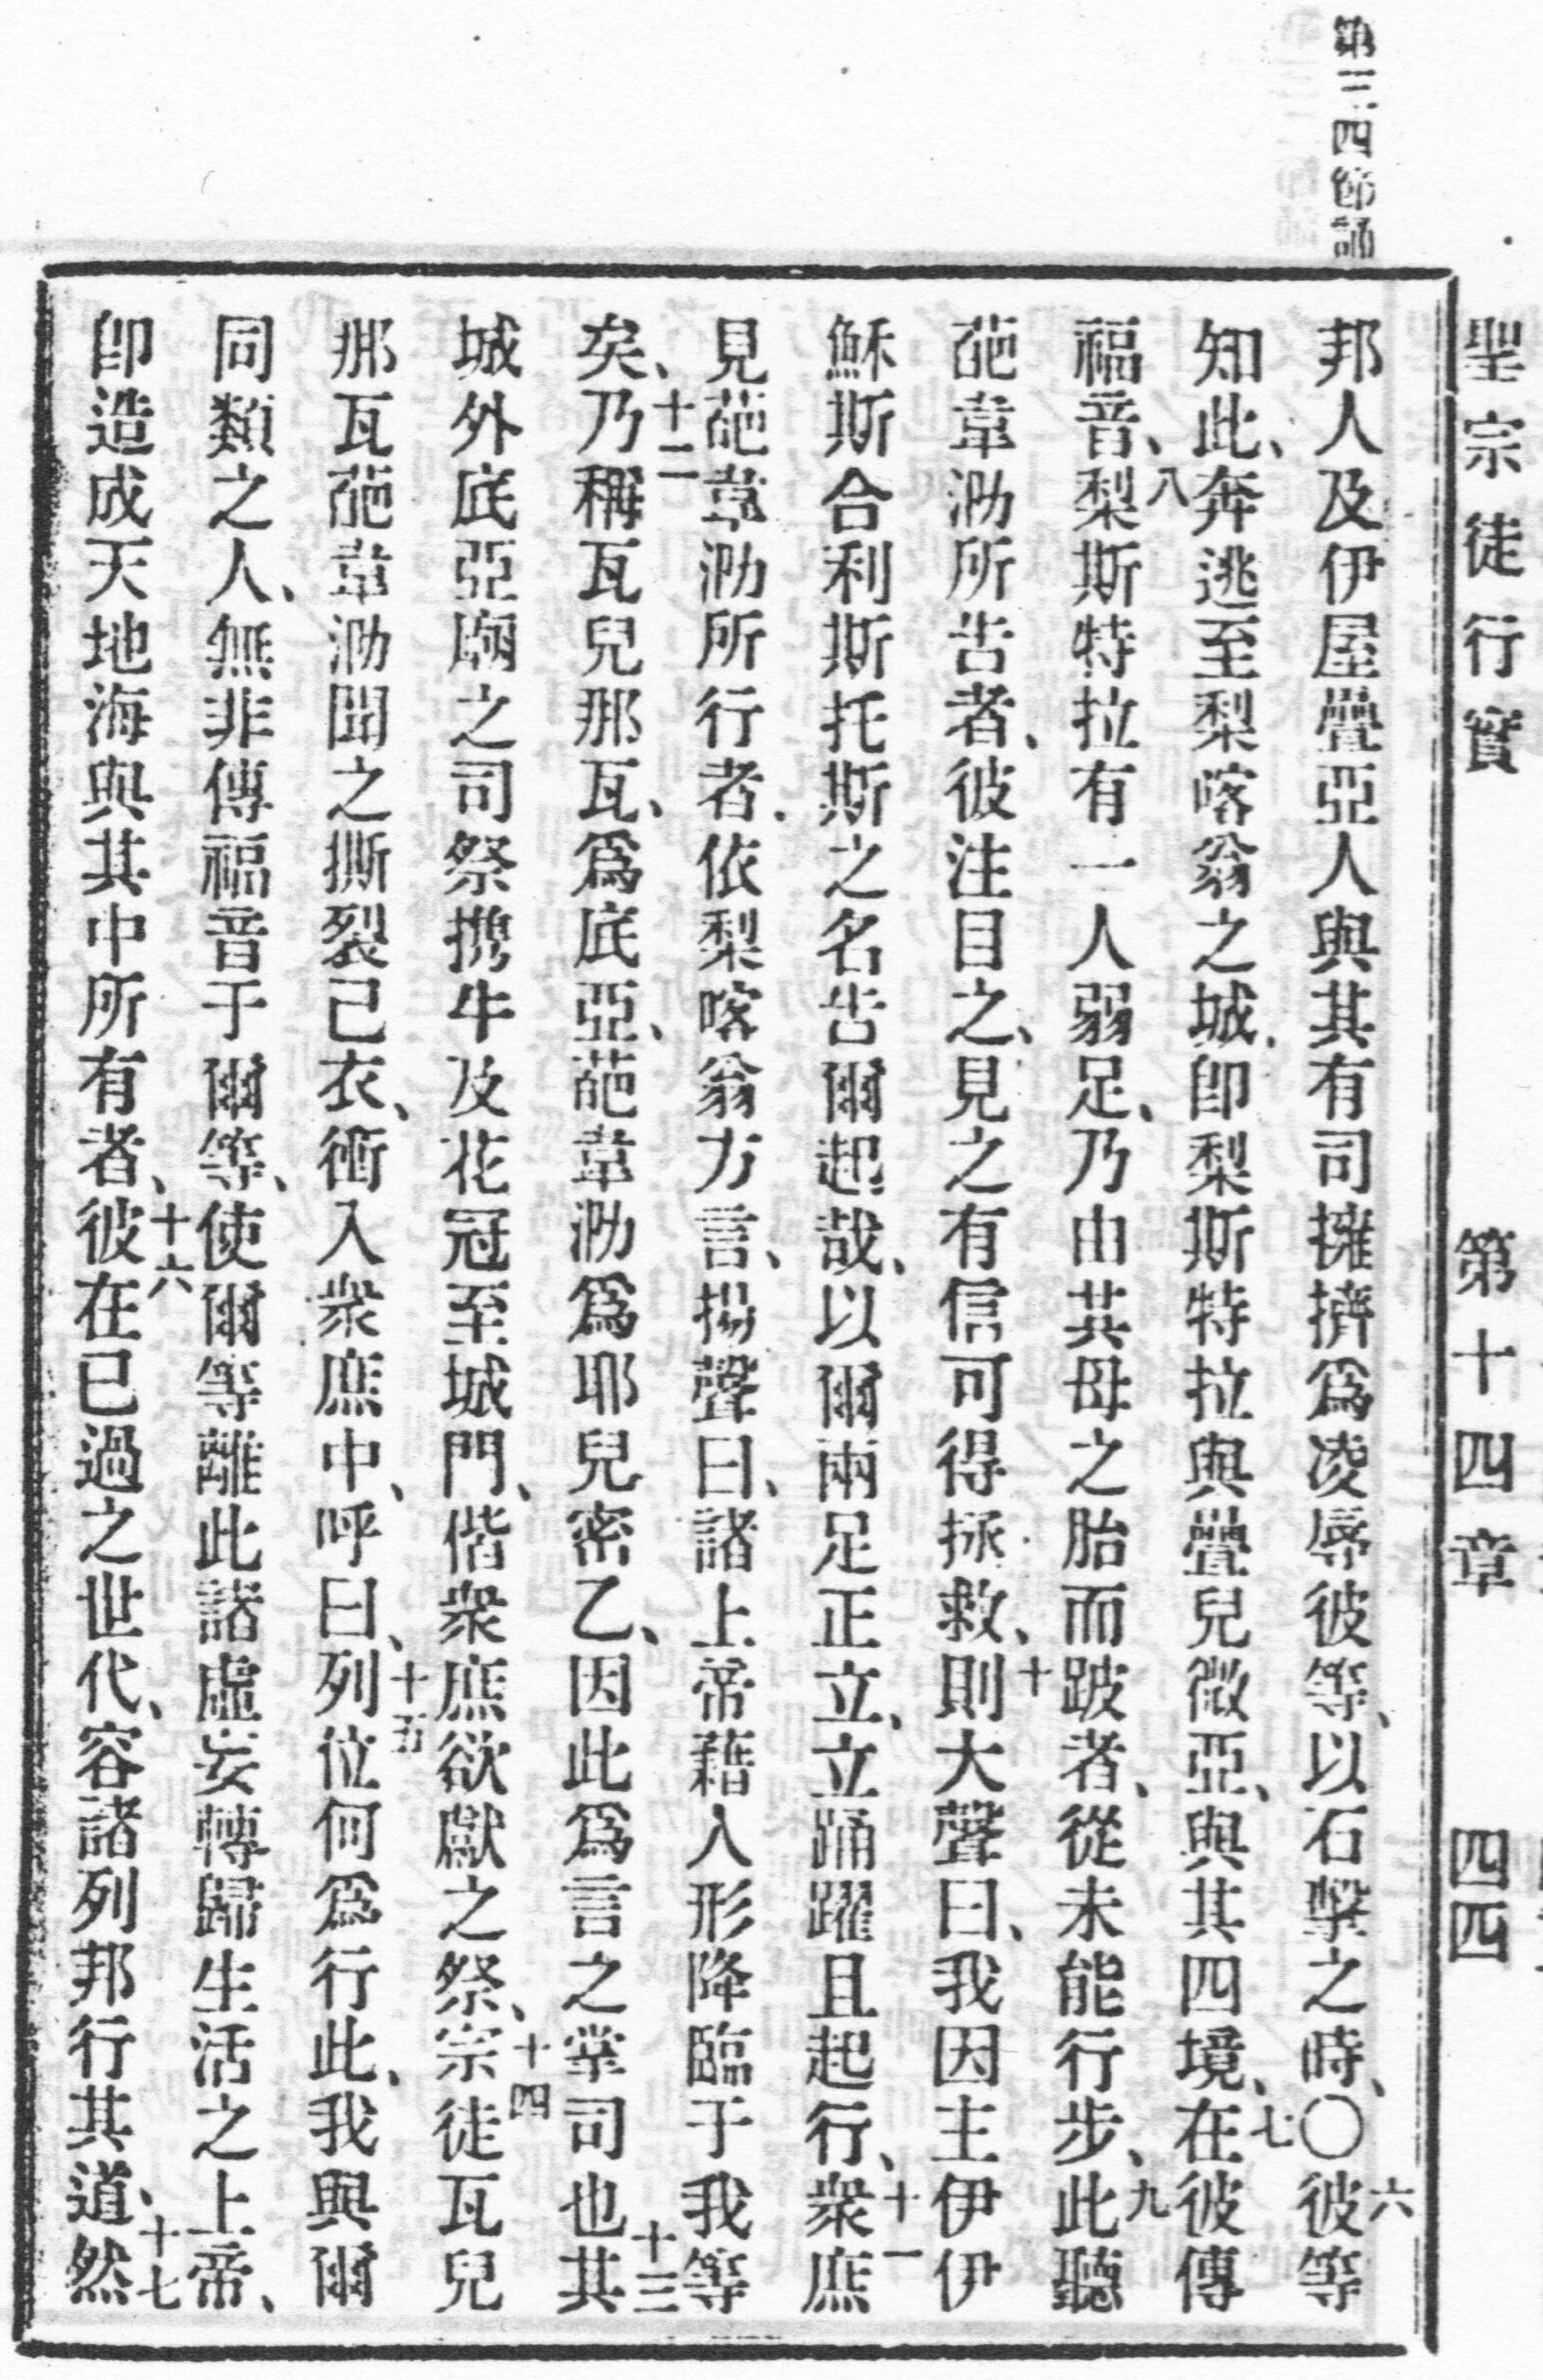 第三四節誦
聖宗徒行實 第十四章 四四
邦人及伊屋疊亞人與其有司擁擠爲凌辱彼等、以石擊之時、〇六彼等
知此、奔逃至梨喀翁之城、卽梨斯特拉與疊兒微亞、與其四境、七在彼傳
福音、八梨斯特拉有一人弱足、乃由其母之胎而跛者、從未能行步、九此聽
葩韋泐所吿者、彼注目之、見之有信可得拯救、十則大聲曰、我因主伊伊
穌斯合利斯托斯之名吿爾起哉、以爾兩足正立、立踊躍且起行、十一衆庶
見葩韋泐所行者、依梨喀翁方言、揚聲曰、諸上帝藉人形降臨于我等
矣、十二乃稱瓦兒那瓦、爲底亞、葩韋泐爲耶兒密乙、因此爲言之掌司也十三其
城外底亞廟之司祭攜牛及花冠至城門、偕衆庶欲獻之祭、十四宗徒瓦兒
那瓦葩韋泐聞之撕裂己衣、衝入衆庶中、呼曰、十五列位何爲行此、我與爾
同類之人、無非傳福音于爾等、使爾等離此諸虛妄轉歸生活之上帝、
卽造成天地海與其中所有者、十六彼在已過之世代、容諸列邦行其道、十七然